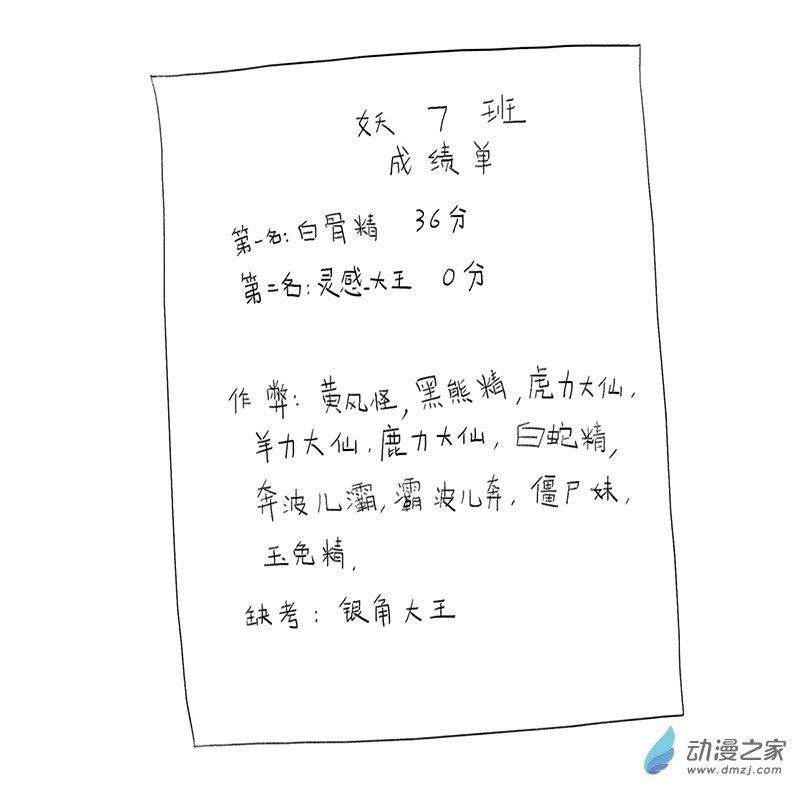 妖7班
成绩单
第一名:白骨精 36分
第二名:灵感大王 0分
作弊:黄风怪,黑熊精,虎力大仙,
羊力大仙,鹿力大仙,白蛇精,
奔波儿灞,灞波儿奔,僵尸妹,
玉兔精,
缺考:银角大王
动漫之家
www.dmzj.com